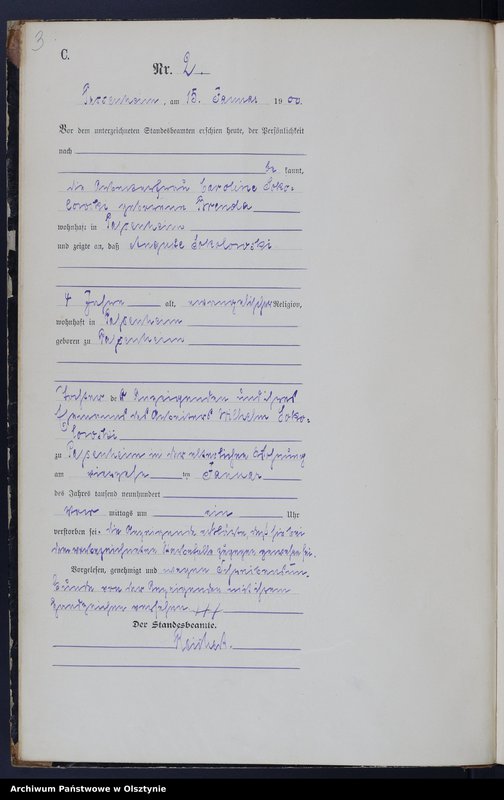 3
C.
Nr. 2.
Passenheim, am 15. Januar 1900.
Vor dem unterzeichneten Standesbeamten erschien heute, der Persönlichkeit
nach
be kannt,
die Arbeiterfrau Caroline Soko-
lowski geborene
wohnhaft in Passenheim
und zeigte an, daß Auguste Sokolowski
4 Jahre alt, evangelischer Religion,
wohnhaft in Passenheim
geboren zu Passenheim
Tochter der Anzeigenden und ihres
Ehemannes des Arbeiters Wilhelm Soko-
lowski
zu Passenheim in der elterlichen Wohnung
am vierzehn ten Januar
des Jahres tausend neunhundert
vor mittags um ein Uhr
verstorben sei. die Anzeigende erklärte, daß sie bei
dem vorbezeichneten Sterbefalle zugegen gewesen sei.
Vorgelesen, genehmigt und wegen Schreibensun-
kunde von der Anzeigenden mit ihrem
Handzeichen versehen +++
Der Standesbeamte.
Archiwum Państwowe w Olsztynie